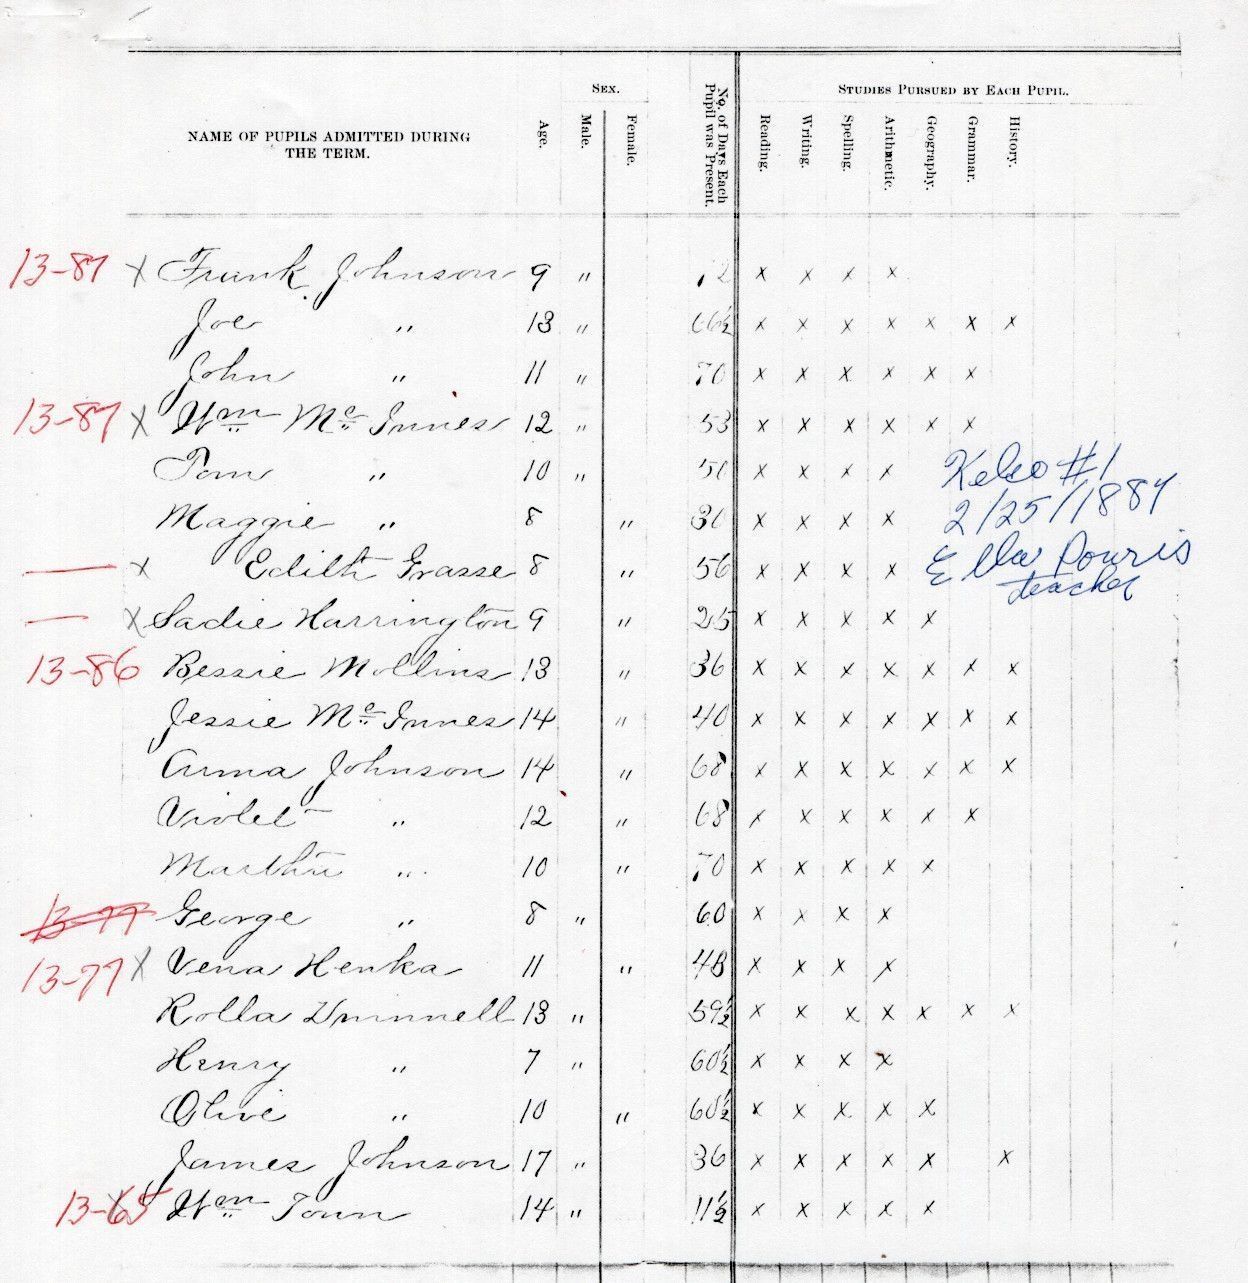 NAME OF PUPILS ADMITTED DURING THE TERM. Age. SEX. Male. Female. No. of Days Each Pupil was Present. STUDIES PURSUED BY EACH PUPIL. Reading. Writing. Spelling. Arithmetic. Geography. Grammar. History.
13-87 x Frank Johnson 9 " 72 x x x x
Joe " 13 " 66½ x x x x x x x
John " 11 " 70 x x x x x x
13-87 x Wm Mc Innes 12 " 53 x x x x x x
Tom " 10 " 50 x x x x
Maggie " 8 " 30 x x x x
— x Edith Grasse 8 " 56 x x x x
— x Sadie Harrington 9 " 25 x x x x x
13-86 Bessie Mollins 13 " 36 x x x x x x x
Jessie Mc Innes 14 " 40 x x x x x x x
Anna Johnson 14 " 68 x x x x x x x
Violet " 12 " 68 x x x x x x
Martha " 10 " 70 x x x x x
13-77 George " 8 " 60 x x x x
13-77 x Vena Henka 11 " 48 x x x x
Rolla 13 " 59½ x x x x x x x
Henry " 7 " 60½ x x x x
Olive " 10 " 60½ x x x x x
James Johnson 17 " 36 x x x x x x
13-65 Wm Town 14 " 11½ x x x x x
Kelso #1
2/25/1887
Ella
teacher